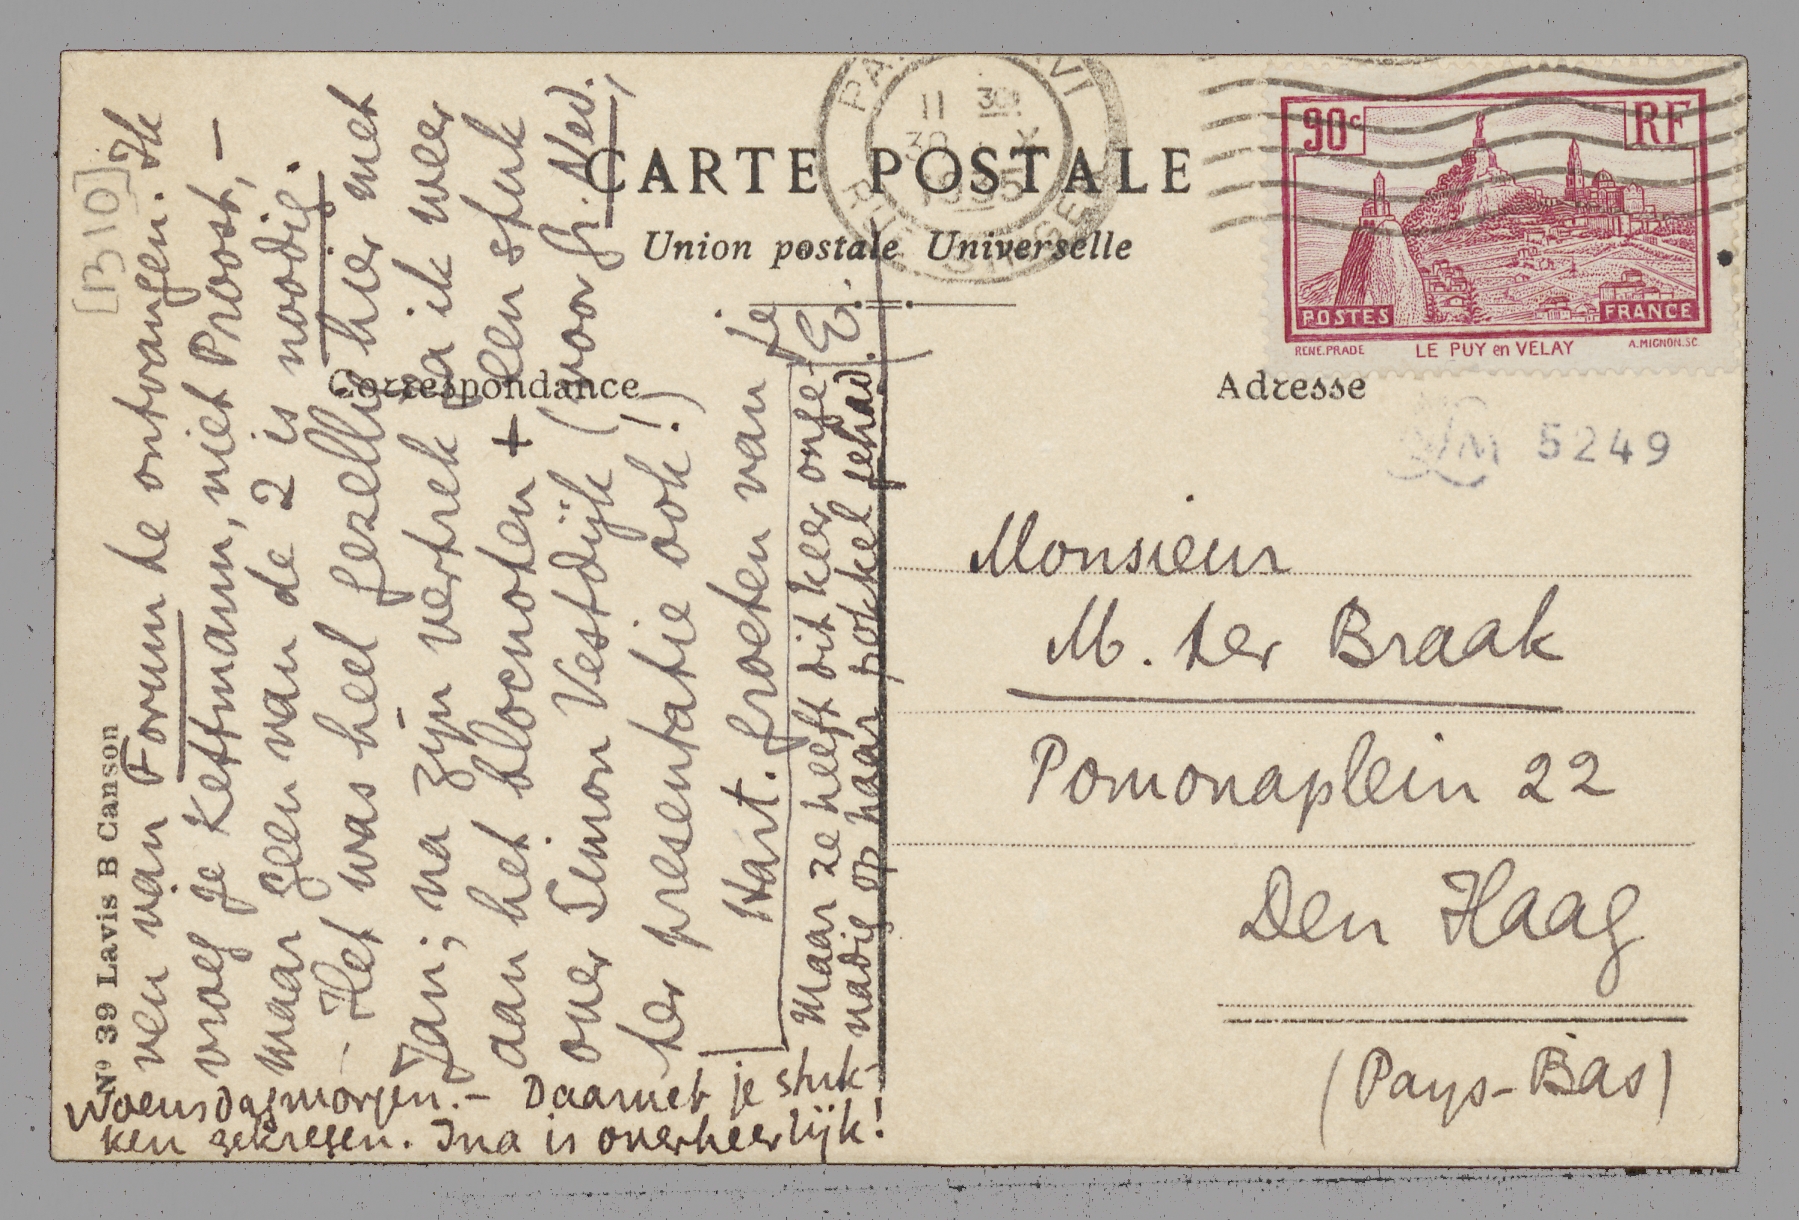 [B 10]
CARTE POSTALE
Union postale Universelle
Correspondance
Adresse
Nº 39 Lavis B Canson
11 30
30 X
1935
90c
RF
POSTES
FRANCE
RENE.PRADE
LE PUY en VELAY
A.MIGNON.SC
LM 5249
ven van Forum te ontvangen. Ik
vroeg je Kettmann, niet Proost, –
maar geen van de 2 is noodig.
– Het was heel gezellig hier met
Jan; na zijn vertrek ga ik weer
aan het blocnoten + een stuk
over Simon Vestdijk (voor Gr. Ned.,
ter presentatie ook!)
Hart. groeten van je
E.
Woensdagmorgen. – Daarnet je stuk-
ken gekregen. Ina is overheerlijk!
Maar ze heeft dit keer onge-
nadig op haar pokkel gehad.
Monsieur
M. ter Braak
Pomonaplein 22
Den Haag
(Pays-Bas)